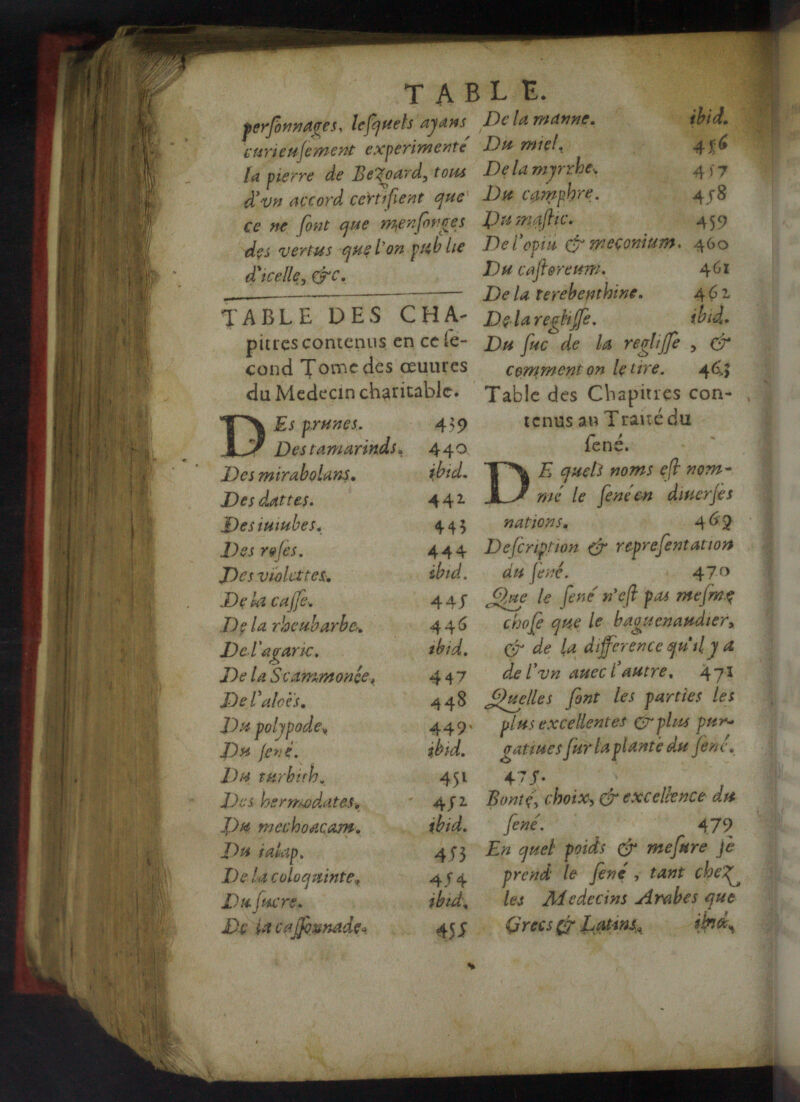 TABLE.
perſonnages, leſquels ayans
curieuſement experimenté
la pierre de Bezoard, tous
d'vn accord certifient que
ce ne ſont que menſonges
des vertus que l'on publie
d'icelle, &c.
TABLE DES CHA-
pitres contenus en ce ſe-
cond Tome des œuures
du Medecin charitable.
DEs prunes. 439
Des tamarinds. 440
Des mirabolans. ibid.
Des dattes. 442
Des iuiubes. 443
Des roſes. 444
Des violettes. ibid.
De la caſſe. 445
De la rheubarbe. 446
De l'agaric. ibid.
De la Scammonée. 447
De l'aloës. 448
Du polypode. 449
Du ſené. ibid.
Du turbith. 451
Des hermodates. 452
Du mechoacam. ibid.
Du ialap. 453
De la coloquinte. 454
Du ſucre. ibid.
De la caſſounade. 455
De la manne. ibid.
Du miel. 456
De la myrrhe. 457
Du camphre. 458
Du maſtic. 459
De l'opiu & meconium. 460
Du caſtoreum. 461
De la terebenthine. 462
De la regliſſe. ibid.
Du ſuc de la regliſſe , &
comment on le tire. 463
Table des Chapitres con-
tenus au Traité du
ſené.
DE quels noms eſt nom-
mé le ſené en diuerſes
nations. 469
Deſcription & repreſentation
du ſené. 470
Que le ſené n'eſt pas meſme
choſe que le baguenaudier,
& de la difference qu'il y a
de l'vn auec l'autre. 471
Quelles ſont les parties les
plus excellentes & plus pur-
gatiues ſur la plante du ſené.
475.
Bonté, choix, & excellence du
ſené. 479
En quel poids & meſure ſe
prend le ſené , tant chez
les Medecins Arabes que
Grecs & Latins. ibid.